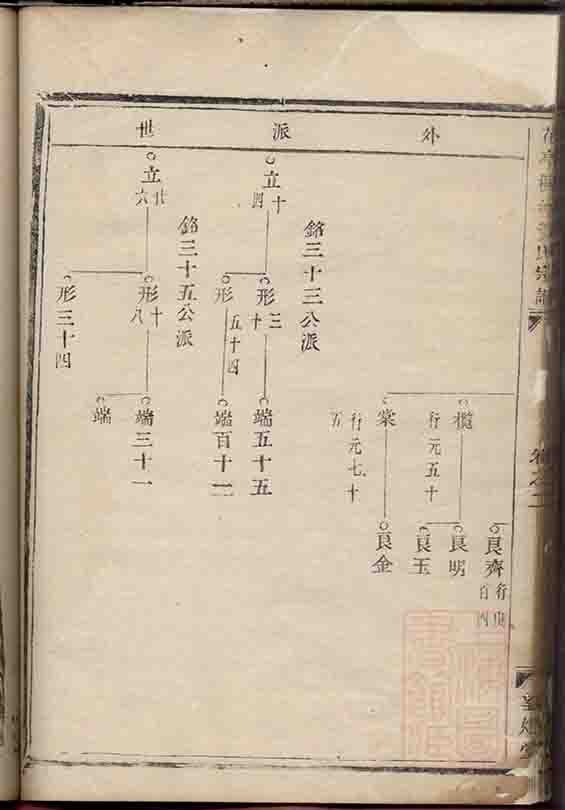 外派世
良齊
行
百四
榄
行元五十
良明
良玉
棠
行元七十五
良金
銘三十三公派
立十四
形三十
端五十五
形五十四
端百十一
銘三十五公派
立廿六
形十八
端三十一
端
形三十四
卷之二